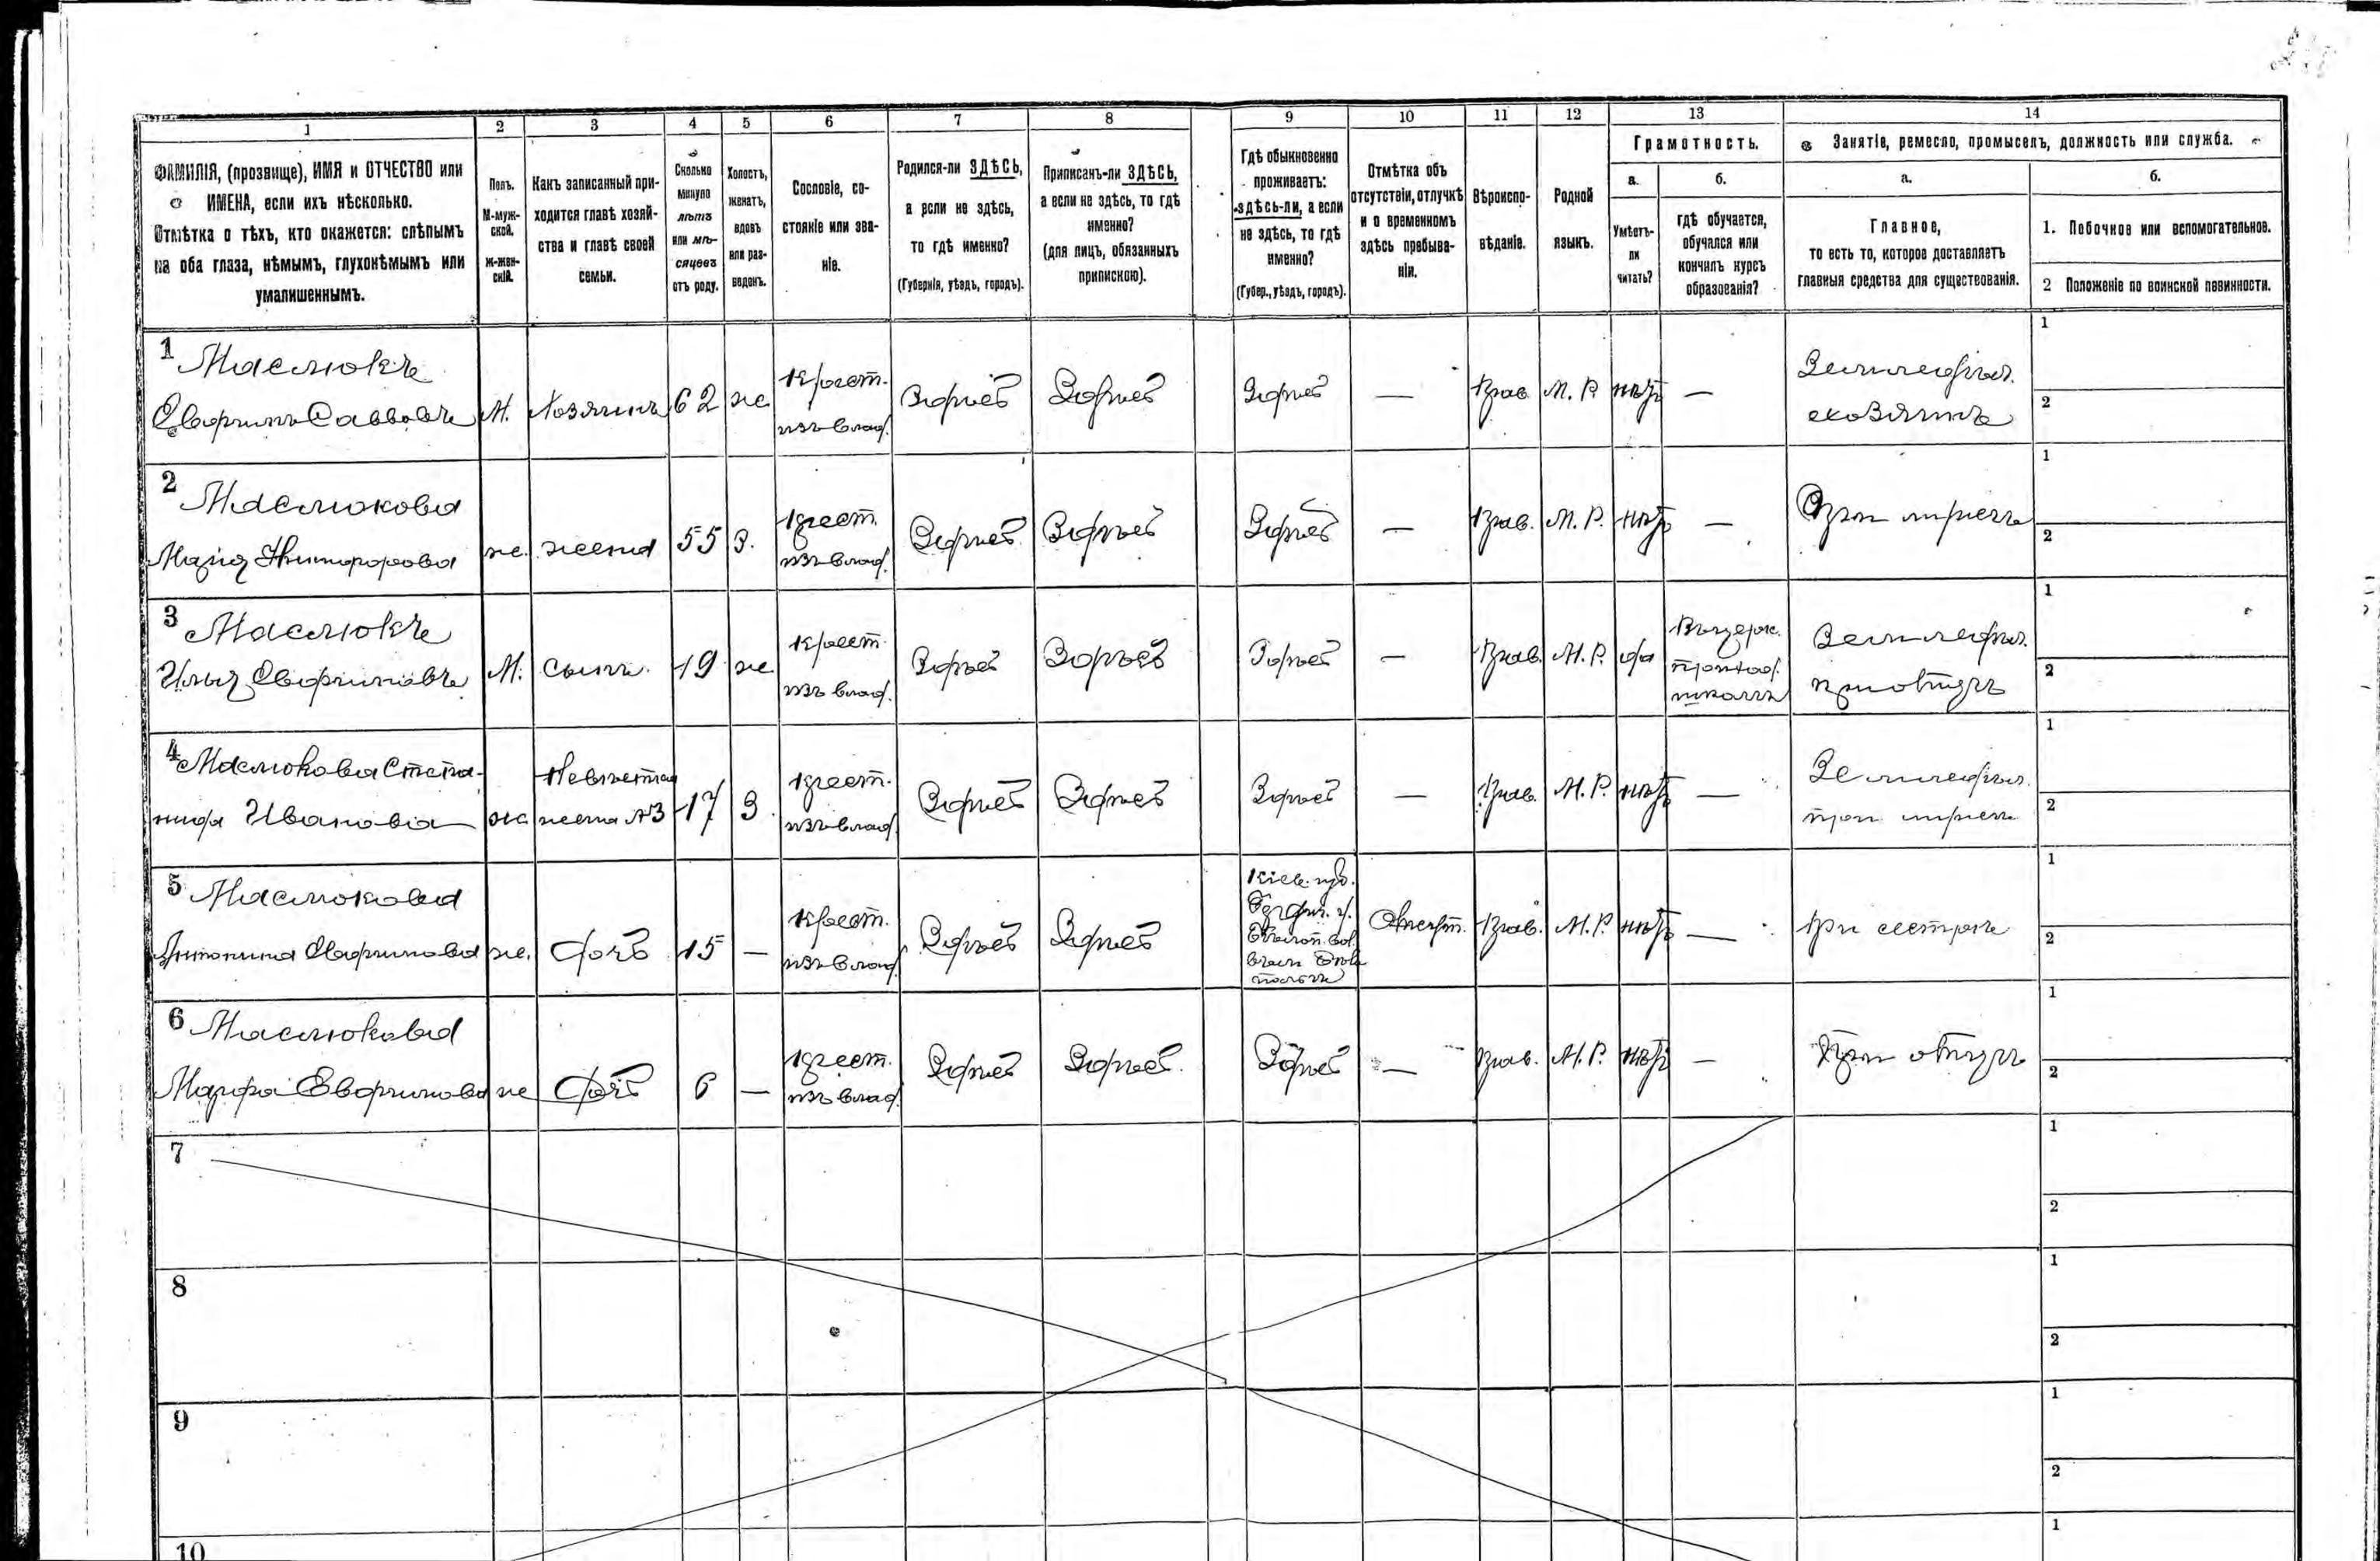 1 2 3 4 5 6 7 8 9 10 11 12 13 14
ФАМИЛІЯ, (прозвище), ИМЯ и ОТЧЕСТВО или
ИМЕНА, если ихъ нѣсколько.
Отмѣтка о тѣхъ, кто окажется: слѣпымъ
на оба глаза, нѣмымъ, глухонѣмымъ или
умалишеннымъ.
Полъ.
М-муж-
ской.
Ж-жен-
скій.
Какъ записанный при-
ходится главѣ хозяй-
ства и главѣ своей
семьи.
Сколько
минуло
лѣтъ
или мѣ-
сяцевъ
отъ роду.
Холостъ,
женатъ,
вдовъ
или раз-
веденъ.
Сословіе, со-
стояніе или зва-
ніе.
Родился-ли ЗДѢСЬ,
а если не здѣсь,
то гдѣ именно?
(Губернія, уѣздъ, городъ).
Приписанъ-ли ЗДѢСЬ,
а если не здѣсь, то гдѣ
именно?
(для лицъ, обязанныхъ
припискою).
Гдѣ обыкновенно
проживаетъ:
здѣсь-ли, а если
не здѣсь, то гдѣ
именно?
(Губер., уѣздъ, городъ).
Отмѣтка объ
отсутствіи, отлучкѣ
и о временномъ
здѣсь пребыва-
ніи.
Вѣроиспо-
вѣданіе.
Родной
языкъ.
Грамотность.
а.
Умѣетъ-
ли
читать?
б.
гдѣ обучается,
обучался или
кончилъ курсъ
образованія?
Занятіе, ремесло, промыселъ, должность или служба.
а.
Главное,
то есть то, которое доставляетъ
главныя средства для существованія.
б.
1. Побочное или вспомогательное.
2 Положеніе по воинской повинности.
1 Маслюкъ
Саввовъ М. хозяинъ 62 ж крест. изъ влад. Здѣсь Здѣсь Здѣсь — Прав М. Р. нѣтъ — Земледѣл. хозяинъ 1 2
2 Маслюкова
Марія Никифорова ж. жена 55 З. крест. изъ влад. Здѣсь Здѣсь Здѣсь — Прав. М. Р. нѣтъ — При мужѣ 1 2
3 Маслюкъ
Илья М. сынъ 19 ж крест. изъ влад. Здѣсь Здѣсь Здѣсь — Прав. М. Р. да школѣ Земледѣл. при отцѣ 1 2
4 Маслюкова Степа-
нида Иванова ж Невѣстка жена №3 17 З. крест. изъ влад. Здѣсь Здѣсь Здѣсь — Прав. М. Р. нѣтъ — Земледѣл. при мужѣ 1 2
5 Маслюкова
Антонина ж. дочь 15 — крест. изъ влад. Здѣсь Здѣсь Кіев. губ. Прав. М. Р. нѣтъ — при сестрѣ 1 2
6 Маслюкова
Марфа ж дочь 6 — крест. изъ влад. Здѣсь Здѣсь Здѣсь — Прав. М. Р. нѣтъ — При отцѣ 1 2
7 1 2
8 1 2
9 1 2
10 1